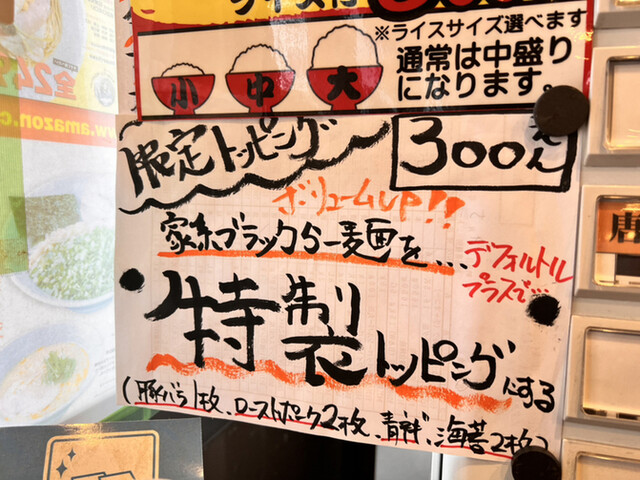 ※ライスサイズ選べます
通常は中盛り
になります。
小 中 大
限定トッピング
300えん
ボリュームUP!!
家系ブラックらー麺を…
デフォルトル
プラスで…
特製トッピングにする
(豚バラ1枚、ローストポーク2枚、青ネギ、海苔2枚)
www.amazon.c
唐